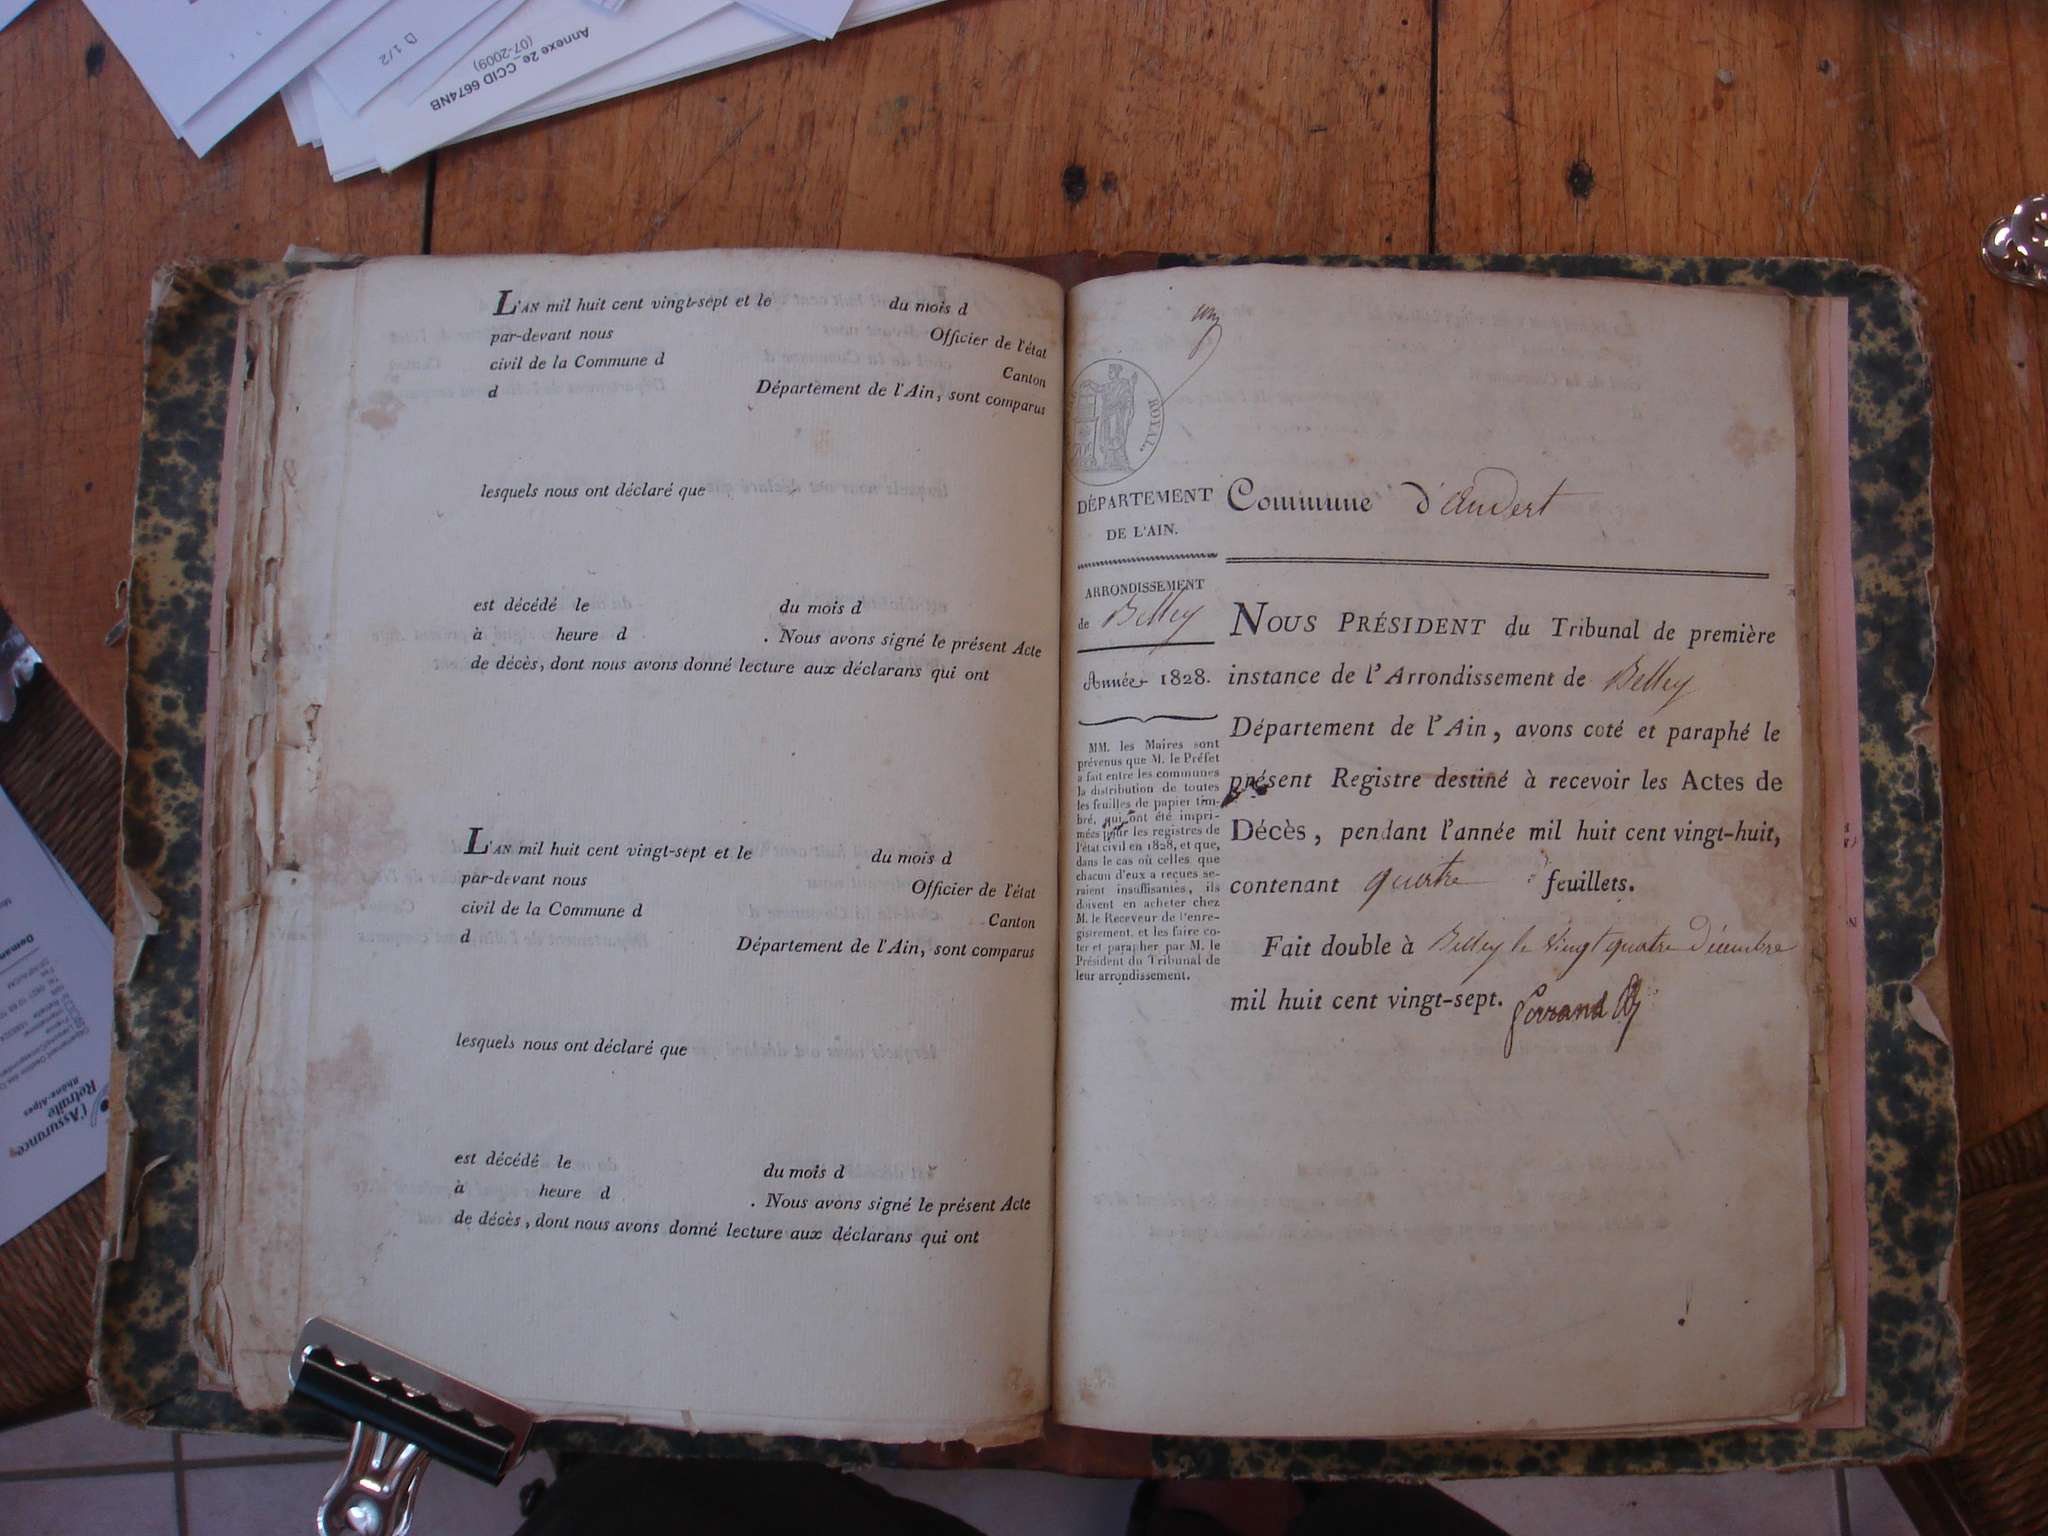 Annexe 2e CCID 6674NB
(07-2009)
D 1/2
L'AN mil huit cent vingt-sept et le du mois d
par-devant nous Officier de l'état
civil de la Commune d Canton
d Département de l'Ain, sont comparus
lesquels nous ont déclaré que
est décédé le du mois d
à heure d . Nous avons signé le présent Acte
de décès, dont nous avons donné lecture aux déclarans qui ont
L'AN mil huit cent vingt-sept et le du mois d
par-devant nous Officier de l'état
civil de la Commune d Canton
d Département de l'Ain, sont comparus
lesquels nous ont déclaré que
est décédé le du mois d
à heure d . Nous avons signé le présent Acte
de décès, dont nous avons donné lecture aux déclarans qui ont
ROYAL.
DÉPARTEMENT
DE L'AIN.
ARRONDISSEMENT
de Belley
Année 1828.
MM. les Maires sont
prévenus que M. le Préfet
a fait entre les communes
la distribution de toutes
les feuilles de papier tim-
bré, qui ont été impri-
mées pour les registres de
l'état civil en 1828, et que,
dans le cas où celles que
chacun d'eux a reçues se-
raient insuffisantes, ils
doivent en acheter chez
M. le Receveur de l'enre-
gistrement, et les faire co-
ter et parapher par M. le
Président du Tribunal de
leur arrondissement.
Commune d'andert
NOUS PRÉSIDENT du Tribunal de première
instance de l'Arrondissement de Belley
Département de l'Ain, avons coté et paraphé le
présent Registre destiné à recevoir les Actes de
Décès, pendant l'année mil huit cent vingt-huit,
contenant quatre feuillets.
Fait double à Belley le vingt quatre Décembre
mil huit cent vingt-sept.
l'Assurance
Retraite
Rhône-Alpes